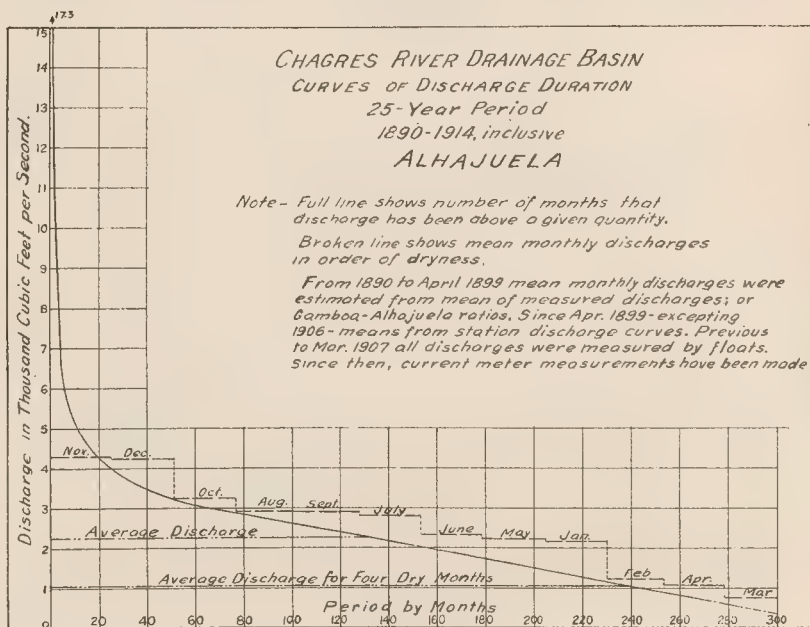 17.3
CHAGRES RIVER DRAINAGE BASIN
CURVES OF DISCHARGE DURATION
25-Year Period
1890-1914, inclusive
ALHAJUELA
Note- Full line shows number of months that
discharge has been above a given quantity.
Broken line shows mean monthly discharges
in order of dryness.
From 1890 to April 1899 mean monthly discharges were
estimated from mean of measured discharges; or
Gamboa-Alhajuela ratios. Since Apr. 1899-excepting
1906-means from station discharge curves. Previous
to Mar. 1907 all discharges were measured by floats.
Since then, current meter measurements have been made
Discharge in Thousand Cubic Feet per Second.
15
14
13
12
11
10
9
8
7
6
5
4
3
2
1
0
Nov. Dec.
Oct.
Aug. Sept.
July
June May Jan.
Feb
Apr.
Mar
Average Discharge
Average Discharge for Four Dry Months
Period by Months
20 40 60 80 100 120 140 160 180 200 220 240 260 280 300